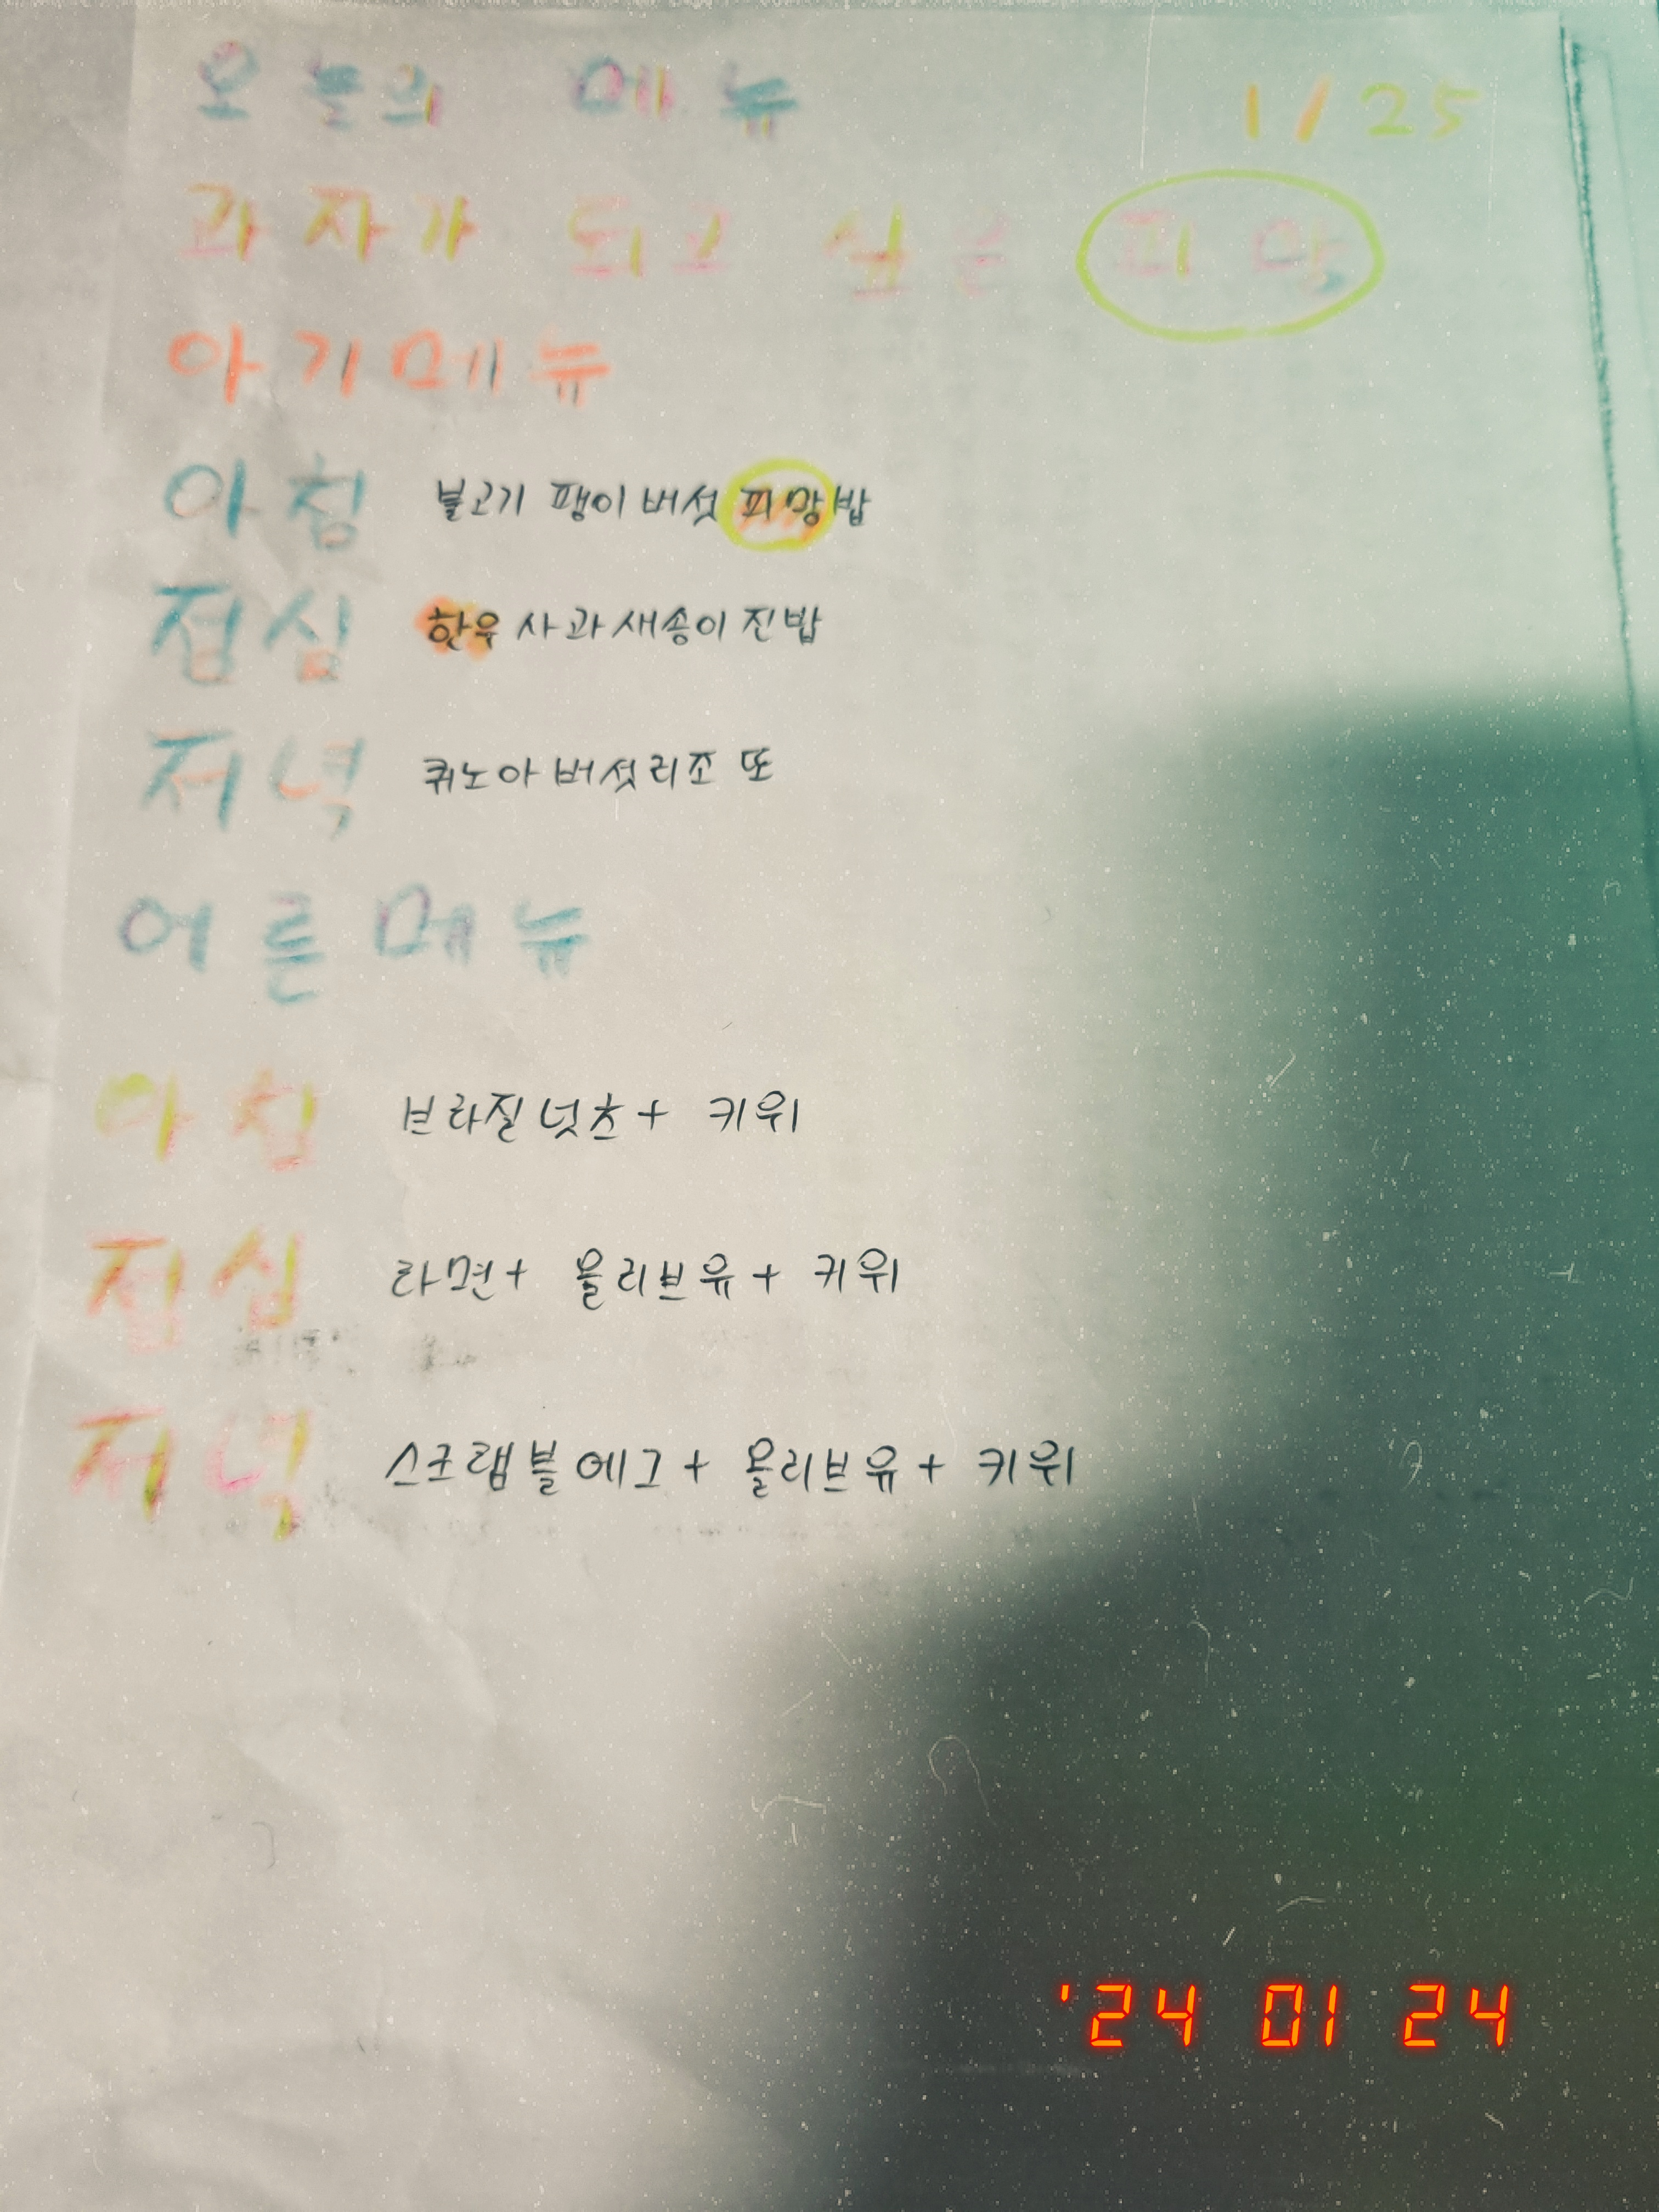 오늘의 메뉴 1/25
과자가 되고 싶은 피망
아기메뉴
아침 불고기 팽이버섯 피망밥
점심 한우 사과새송이 진밥
저녁 퀴노아버섯리조또
어른메뉴
아침 브라질넛츠+ 키위
점심 라면+ 올리브유+ 키위
저녁 스크램블에그+ 올리브유+ 키위
'24 01 24